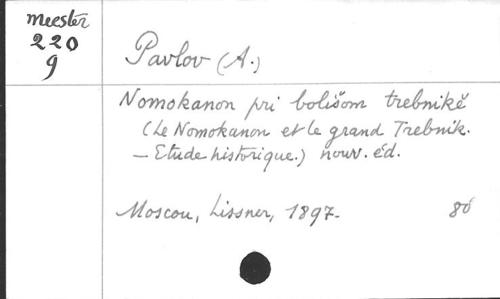 Meester
220
g
Pavlov (A.)
Nomokanon pri bolišom trebnikě
(Le Nomokanon et le grand Trebnik.
— Etude historique.) nouv. éd.
Moscou, Lissner, 1897.
8º